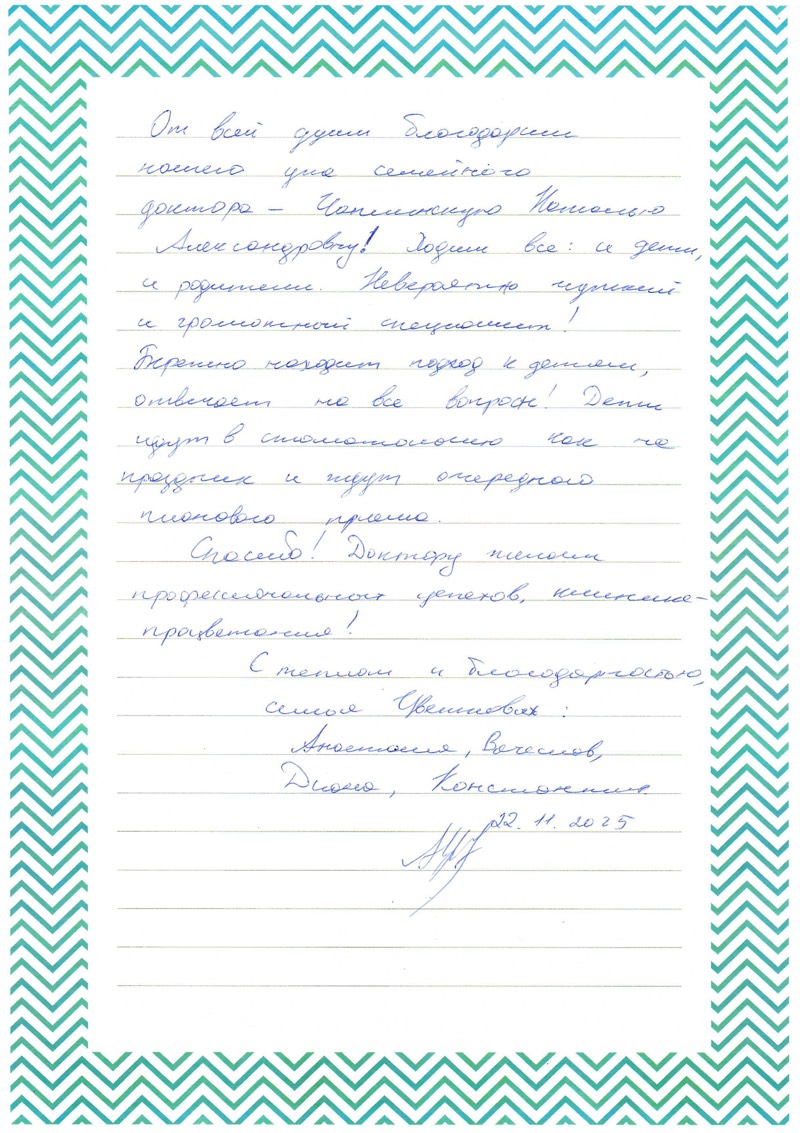 От всей души благодарим
нашего уже семейного
доктора – Наталью
Александровну! Ходим все: и дети,
и родители. Невероятно чуткий
и грамотный специалист!
Бережно находит подход к детям,
отвечает на все вопросы! Дети
идут в стоматологию как на
праздник и ждут очередного
планового приема.
Спасибо! Доктору желаем
профессиональных успехов, клинике –
процветания!
С теплом и благодарностью,
семья Цветковых:
Анастасия, Вячеслав,
Диана, Константин.
22.11.2025